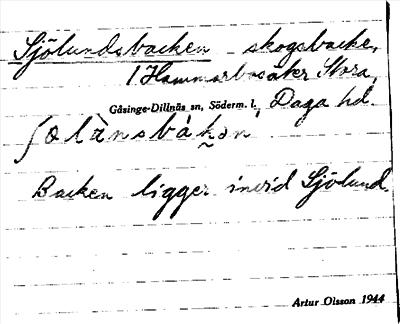 Sjölundsbacken skogsbacke,
1 Hammarbosäkr Stora,
Gåsinge-Dillnäs sn, Söderm. l., Daga hd.
ʃølànsbákən
Backen ligger invid Sjölund.
Artur Olsson 1944